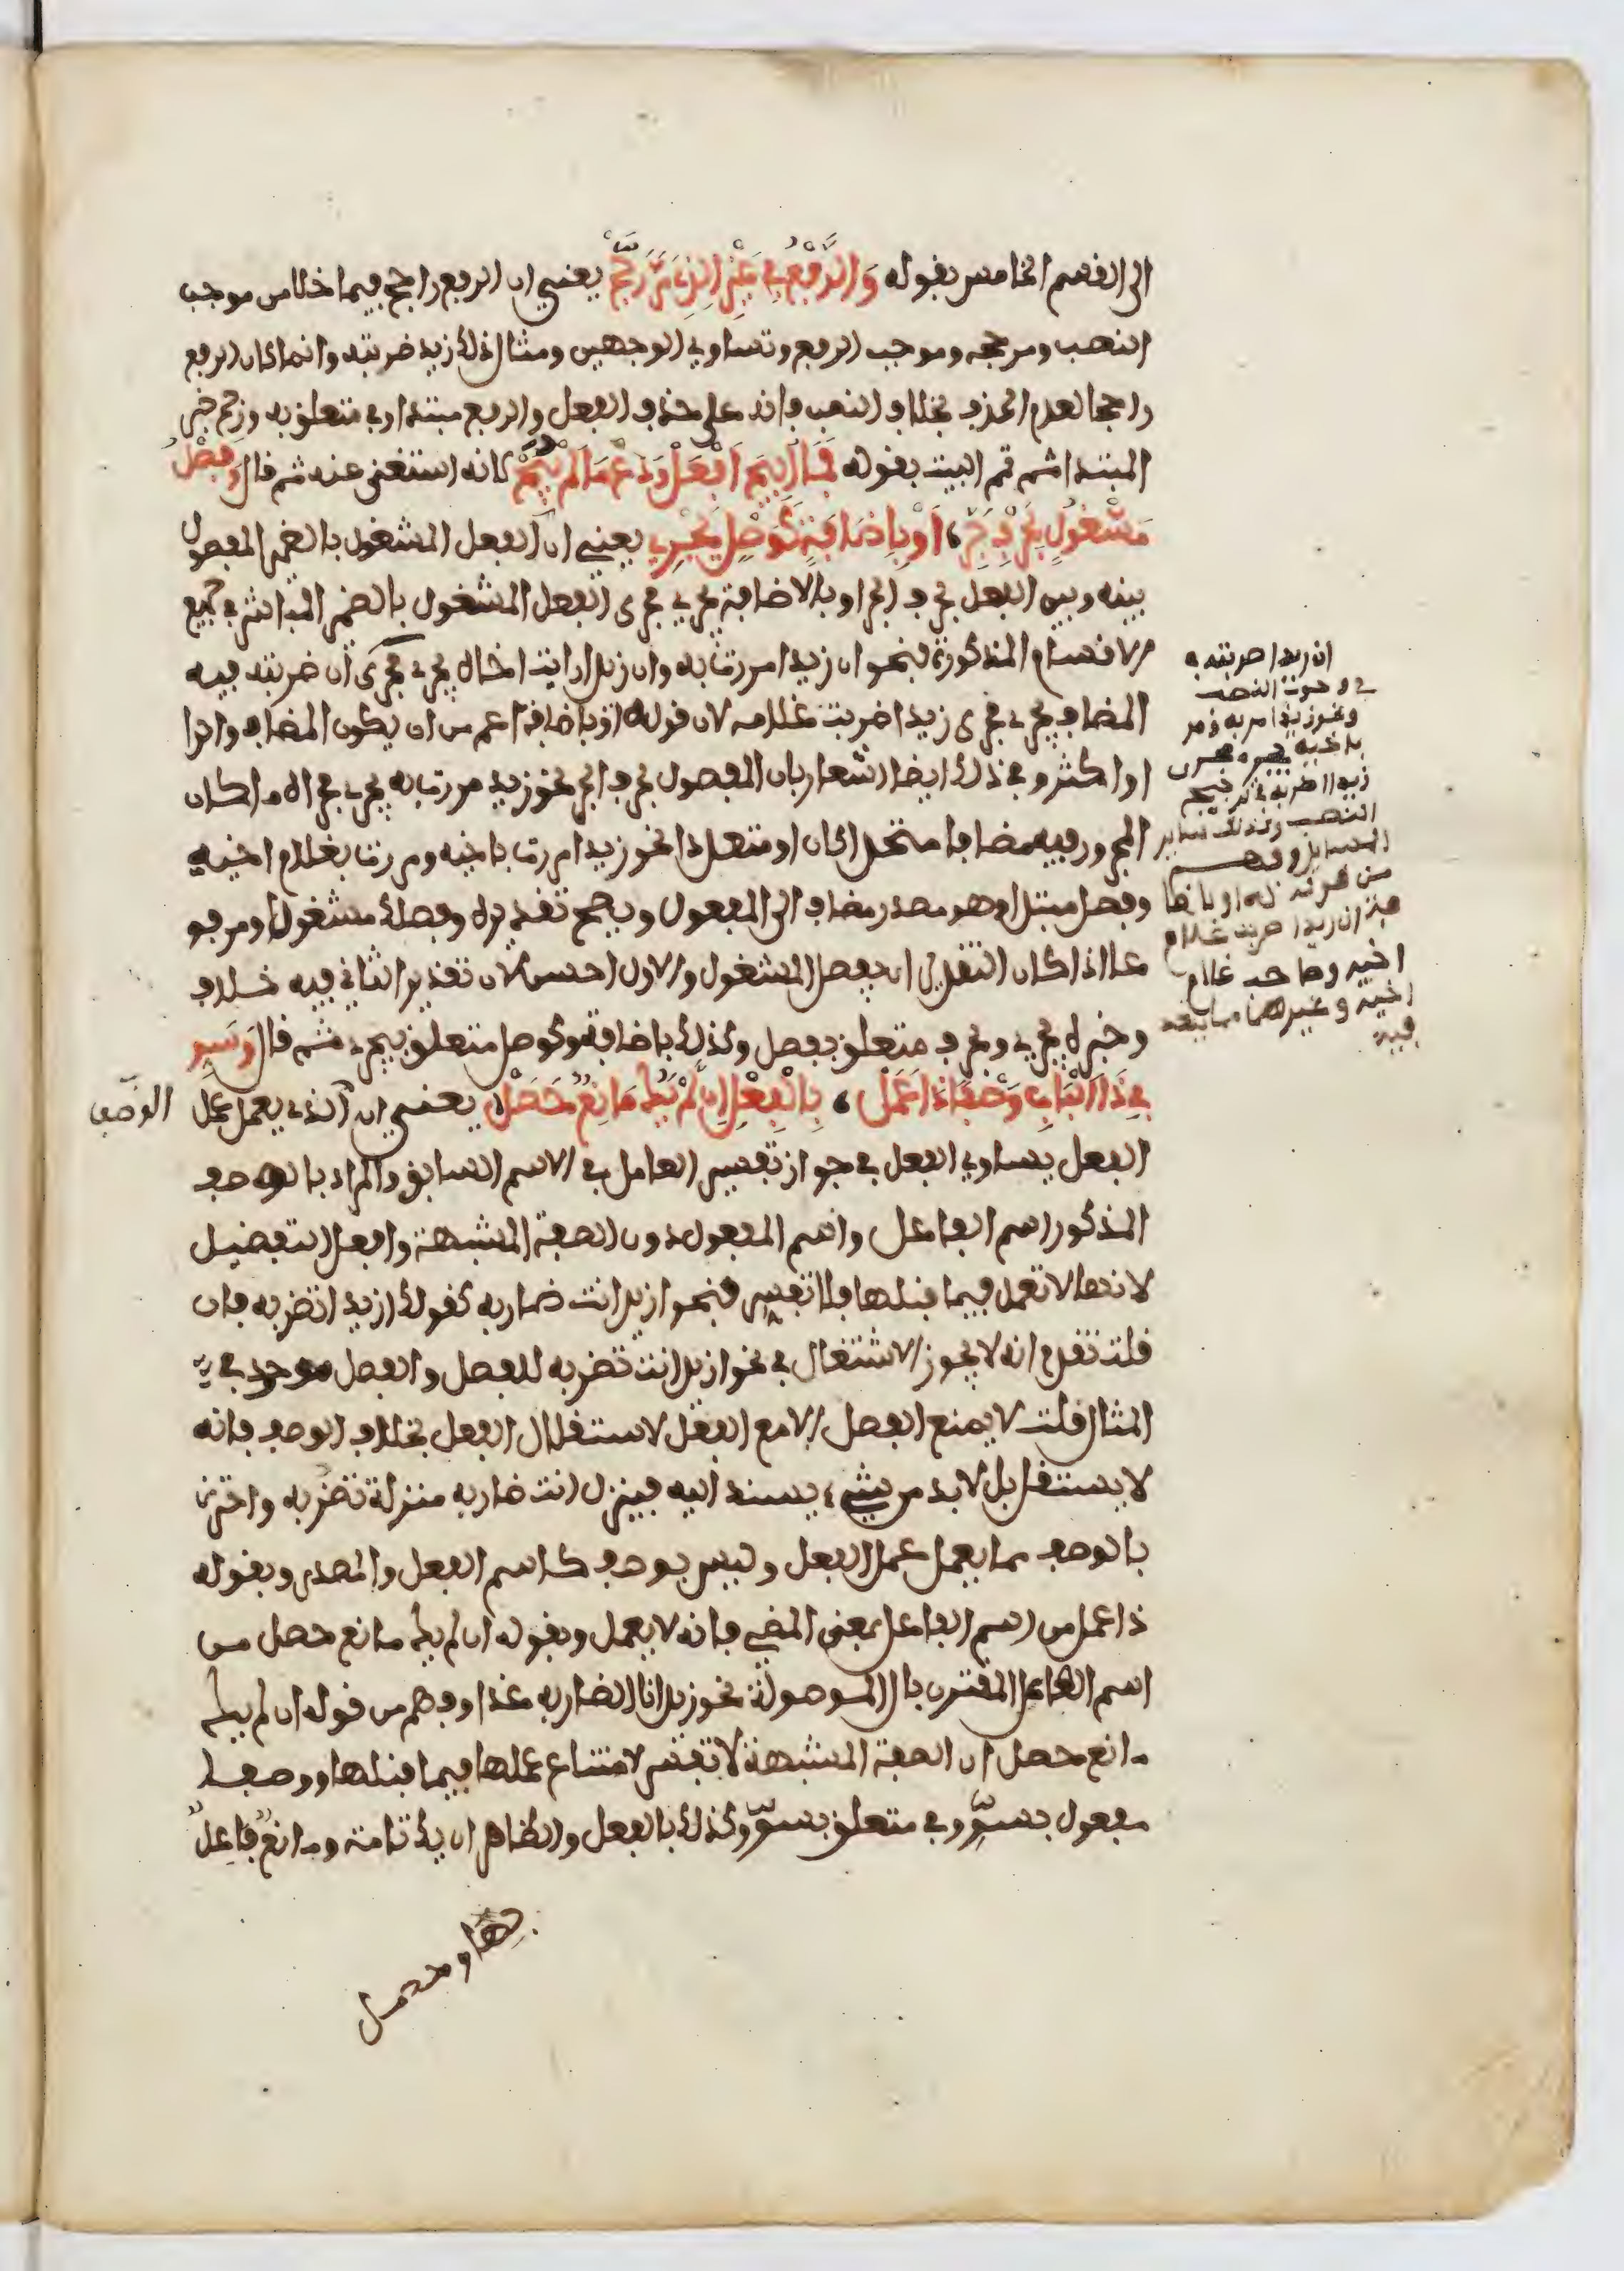 الى القسم الخامس بقوله وَالرَّفْعُ فِي غَيْرِ الذِي مَرَّ رَجَحْ يعني ان الرفع راجح فيما خلا من موجب
النصب ومرجحه وموجب الرفع وتساوي الوجهين ومثال ذلك زيد ضربته وانما كان الرفع
راجحا لعدم الحذف بخلاف النصب فانه على حذف الفعل والرفع مبتدا وفي متعلق به ورجح خبر
المبتدا ثم تمم البيت بقوله فَمَا أُبِيحَ افْعَلْ وَدَعْ مَا لَمْ يُبَحْ كانه استغنى عنه ثم قال وَفَصْلُ
مَشْغُولٍ بِحَرْفِ جَرِّ، أَوْ بِإِضَافَةٍ كَوَصْلٍ يَجْرِي يعني ان الفعل المشغول بالضمير المفصول
بينه وبين الفعل بحرف الجر او بالاضافة يجري مجرى الفعل المشغول بالضمير المباشر في جميع
الاقسام المذكورة فنحو ان زيدا مررت به وان زيدا رايت اخاه يجري مجرى ان ضربته فيه
المضاف يجري مجرى زيدا ضربت غلامه لان قوله او باضافة اعم من ان يكون المضاف واحدا
او اكثر وفي ذلك ايضا اشعار بان المفصول بحرف الجر نحو زيد مررت به يجري مجراه ما كان
المجرور فيه مضافا متحدا كان او متعددا نحو زيدا مررت باخيه ومررت بغلام اخيه
وفصل مبتدا وهو مصدر مضاف الى المفعول ويصح تقديره وفصلك مشغولا او مرفو
عا اذا كان التقدير ان يفصل المشغول والاول احسن لان تقدير الثاني فيه خلاف
وخبره يجري وبحرف متعلق بفصل وكذلك باضافة وكوصل متعلق بيجري ثم قال وَسَوِّ
فِي ذَا الْبَابِ وَصْفًا ذَا عَمَلْ، بِالْفِعْلِ إِنْ لَمْ يَكُ مَانِعٌ حَصَلْ، يعني ان الذي يعمل عمل
الوصف
الفعل يساوي الفعل في جواز تفسير العامل في الاسم السابق والمراد بالوصف
المذكور اسم الفاعل واسم المفعول دون الصفة المشبهة وافعل التفضيل
لانهما لا تعمل فيما قبلها فلا تفسر فنحو ازيدا انت ضاربه كقولك ازيدا تضربه فان
قلت تقدم انه لا يجوز الاشتغال في نحو ازيدا انت تضربه للفصل والفصل موجود في
المثال قلت لا يمنع الفصل الا مع الفعل لاستقلال الفعل بخلاف الوصف فانه
لا يستقل بل لا بد من شيء يسند اليه فينزل انت ضاربه منزلة تضربه واحترز
بالوصف مما يعمل عمل الفعل وليس بوصف كاسم الفعل والمصدر وبقوله
ذا عمل من اسم الفاعل بمعنى المضي فانه لا يعمل وبقوله ان لم يك مانع حصل من
اسم الفاعل المقترن بال الموصولة نحو زيد انا الضاربه غدا وفهم من قوله ان لم يك
مانع حصل ان الصفة المشبهة لا تفسر لامتناع عملها فيما قبلها ووصفا
مفعول بسوّ وفي متعلق بسوّ وكذلك بالفعل والظاهر ان يك تامة ومانع فاعل
بها وحصل
ان زيدا ضربته
في وجوب النصب
ونحو زيدا مر به ومر
باخيه يجري مجرى
زيدا اضربه في ترجيح
النصب وكذلك سائر
المسايل وفهم
من قوله او باضا
فة ان زيدا ضربت غلام
اخيه وصاحب غلام
اخيه وغيرهما مما يتعد
فيه